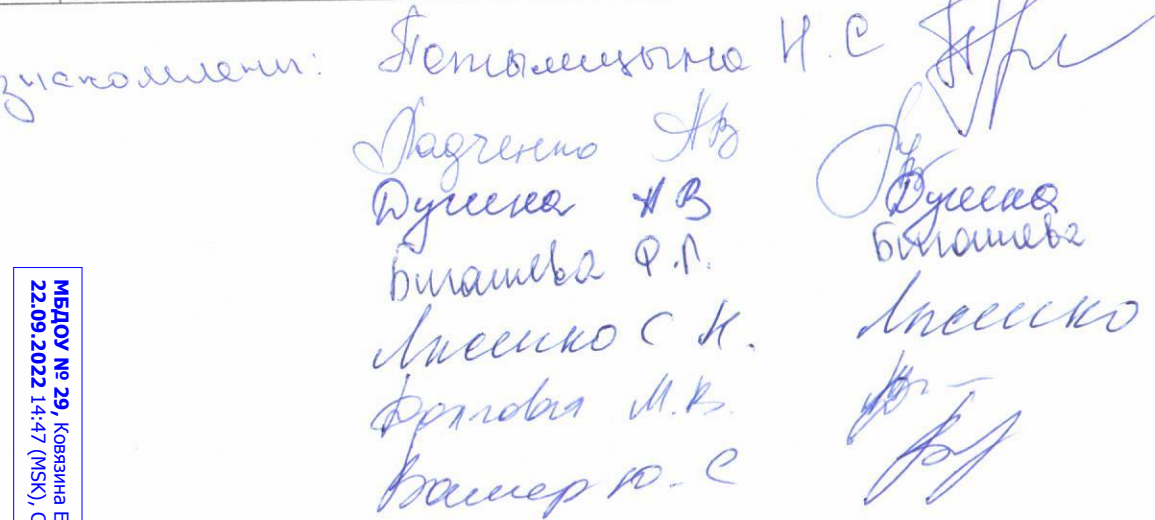 знакомлены: Потылицына Н.С
Радченко АВ
Душина АВ Душина
Бигашева Ф.Г. Бигашева
Лисенко С Н. Лисенко
Долговая М.В.
Вашер Ю.С
МБДОУ № 29, Ковязина Е
22.09.2022 14:47 (MSK), С